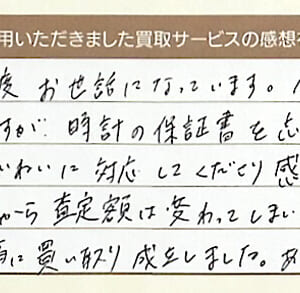 用いただきました買取サービスの感想
度 お世話になっています。
すが 時計の保証書を忘
いねいに 対応 してくださり 感
から 査定額は変わってしまい
に 買い取り 成立しました。あ